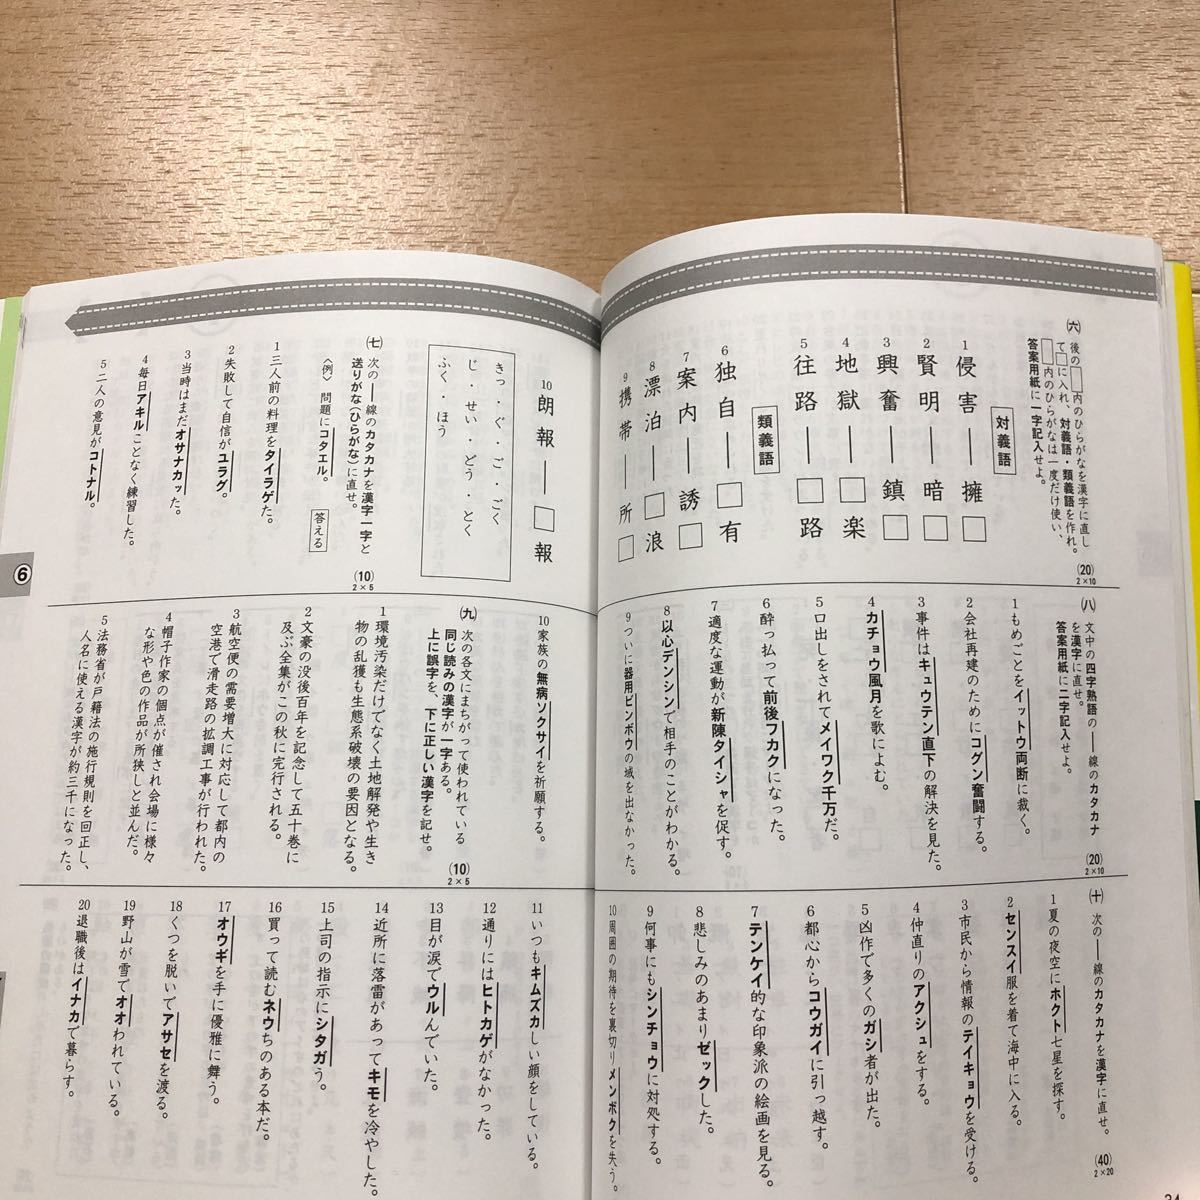 ㈥ 後の□内のひらがなを漢字に直し
て□に入れ、対義語・類義語を作れ。
□内のひらがなは一度だけ使い、
答案用紙に一字記入せよ。
(20)
2×10
対義語
1 侵害 ― 擁□
2 賢明 ― 暗□
3 興奮 ― 鎮□
4 地獄 ― □楽
5 往路 ― □路
類義語
6 独自 ― □有
7 案内 ― 誘□
8 漂泊 ― □浪
9 携帯 ― 所□
10 朗報 ― □報
きっ・ぐ・ご・ごく
じ・せい・どう・とく
ふく・ほう
㈦ 次の―線のカタカナを漢字一字と
送りがな(ひらがな)に直せ。
〈例〉 問題にコタエル。 答える
(10)
2×5
1 三人前の料理をタイラゲた。
2 失敗して自信がユラグ。
3 当時はまだオサナカッた。
4 毎日アキルことなく練習した。
5 二人の意見がコトナル。
㈧ 文中の四字熟語の―線のカタカナ
を漢字に直せ。
答案用紙に二字記入せよ。
(20)
2×10
1 もめごとをイットウ両断に裁く。
2 会社再建のためにコグン奮闘する。
3 事件はキュウテン直下の解決を見た。
4 カチョウ風月を歌によむ。
5 口出しをされてメイワク千万だ。
6 酔っ払って前後フカクになった。
7 適度な運動が新陳タイシャを促す。
8 以心デンシンで相手のことがわかる。
9 ついに器用ビンボウの域を出なかった。
10 家族の無病ソクサイを祈願する。
㈨ 次の各文にまちがって使われている
同じ読みの漢字が一字ある。
上に誤字を、下に正しい漢字を記せ。
(10)
2×5
1 環境汚染だけでなく土地解発や生き
物の乱獲も生態系破壊の要因となる。
2 文豪の没後百年を記念して五十巻に
及ぶ全集がこの秋に完行される。
3 航空便の需要増大に対応して都内の
空港で滑走路の拡調工事が行われた。
4 帽子作家の個点が催され会場に様々
な形や色の作品が所狭しと並んだ。
5 法務省が戸籍法の施行規則を回正し、
人名に使える漢字が約三千になった。
㈩ 次の―線のカタカナを漢字に直せ。
(40)
2×20
1 夏の夜空にホクト七星を探す。
2 センスイ服を着て海中に入る。
3 市民から情報のテイキョウを受ける。
4 仲直りのアクシュをする。
5 凶作で多くのガシ者が出た。
6 都心からコウガイに引っ越す。
7 テンケイ的な印象派の絵画を見る。
8 悲しみのあまりゼックした。
9 何事にもシンチョウに対処する。
10 周囲の期待を裏切りメンボクを失う。
11 いつもキムズカしい顔をしている。
12 通りにはヒトカゲがなかった。
13 目が涙でウルんでいた。
14 近所に落雷があってキモを冷やした。
15 上司の指示にシタガう。
16 買って読むネウちのある本だ。
17 オウギを手に優雅に舞う。
18 くつを脱いでアサセを渡る。
19 野山が雪でオオわれている。
20 退職後はイナカで暮らす。
6